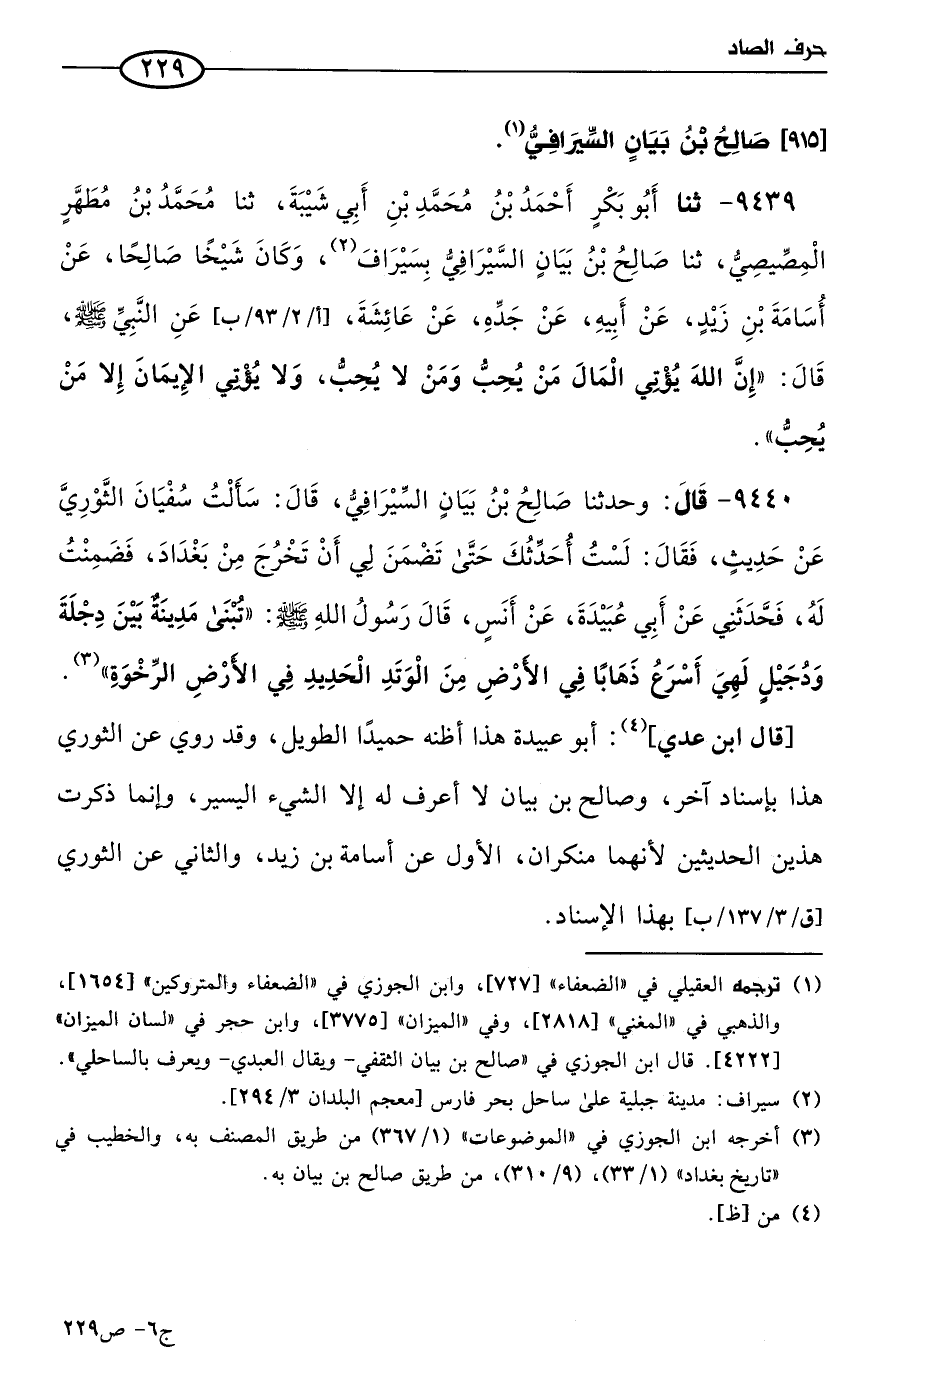 حرف الصاد
٢٢٩
[٩١٥] صَالِحُ بْنُ بَيَانٍ السِّيرَافِيُّ(١).
٩٤٣٩- ثنا أَبُو بَكْرٍ أَحْمَدُ بْنُ مُحَمَّدِ بْنِ أَبِي شَيْبَةَ، ثنا مُحَمَّدُ بْنُ مُطَهَّرٍ
الْمِصِّيصِيُّ، ثنا صَالِحُ بْنُ بَيَانٍ السَّيْرَافِيُّ بِسَيْرَافَ(٢)، وَكَانَ شَيْخًا صَالِحًا، عَنْ
أُسَامَةَ بْنِ زَيْدٍ، عَنْ أَبِيهِ، عَنْ جَدِّهِ، عَنْ عَائِشَةَ، [أ/٢/٩٣/ب] عَنِ النَّبِيِّ ﷺ،
قَالَ: «إِنَّ اللهَ يُؤْتِي الْمَالَ مَنْ يُحِبُّ وَمَنْ لا يُحِبُّ، وَلا يُؤْتِي الإِيمَانَ إِلا مَنْ
يُحِبُّ».
٩٤٤٠- قَالَ: وحدثنا صَالِحُ بْنُ بَيَانٍ السِّيْرَافِيُّ، قَالَ: سَأَلْتُ سُفْيَانَ الثَّوْرِيَّ
عَنْ حَدِيثٍ، فَقَالَ: لَسْتُ أُحَدِّثُكَ حَتَّىٰ تَضْمَنَ لِي أَنْ تَخْرُجَ مِنْ بَغْدَادَ، فَضَمِنْتُ
لَهُ، فَحَّدَثَنِي عَنْ أَبِي عُبَيْدَةَ، عَنْ أَنَسٍ، قَالَ رَسُولُ اللهِ ﷺ: «تُبْنَىٰ مَدِينَةٌ بَيْنَ دِجْلَةَ
وَدُجَيْلٍ لَهِيَ أَسْرَعُ ذَهَابًا فِي الأَرْضِ مِنَ الْوَتَدِ الْحَدِيدِ فِي الأَرْضِ الرِّخْوَةِ»(٣).
[قال ابن عدي](٤): أبو عبيدة هذا أظنه حميدًا الطويل، وقد روي عن الثوري
هذا بإسناد آخر، وصالح بن بيان لا أعرف له إلا الشيء اليسير، وإنما ذكرت
هذين الحديثين لأنهما منكران، الأول عن أسامة بن زيد، والثاني عن الثوري
[ق/٣/١٣٧/ب] بهذا الإسناد.
(١) ترجمه العقيلي في «الضعفاء» [٧٢٧]، وابن الجوزي في «الضعفاء والمتروكين» [١٦٥٤]،
والذهبي في «المغني» [٢٨١٨]، وفي «الميزان» [٣٧٧٥]، وابن حجر في «لسان الميزان»
[٤٢٢٢]. قال ابن الجوزي في «صالح بن بيان الثقفي- ويقال العبدي- ويعرف بالساحلي».
(٢) سيراف: مدينة جبلية علىٰ ساحل بحر فارس [معجم البلدان ٣/ ٢٩٤].
(٣) أخرجه ابن الجوزي في «الموضوعات» (١/ ٣٦٧) من طريق المصنف به، والخطيب في
«تاريخ بغداد» (١/ ٣٣)، (٩/ ٣١٠)، من طريق صالح بن بيان به.
(٤) من [ظ].
ج٦- ص٢٢٩